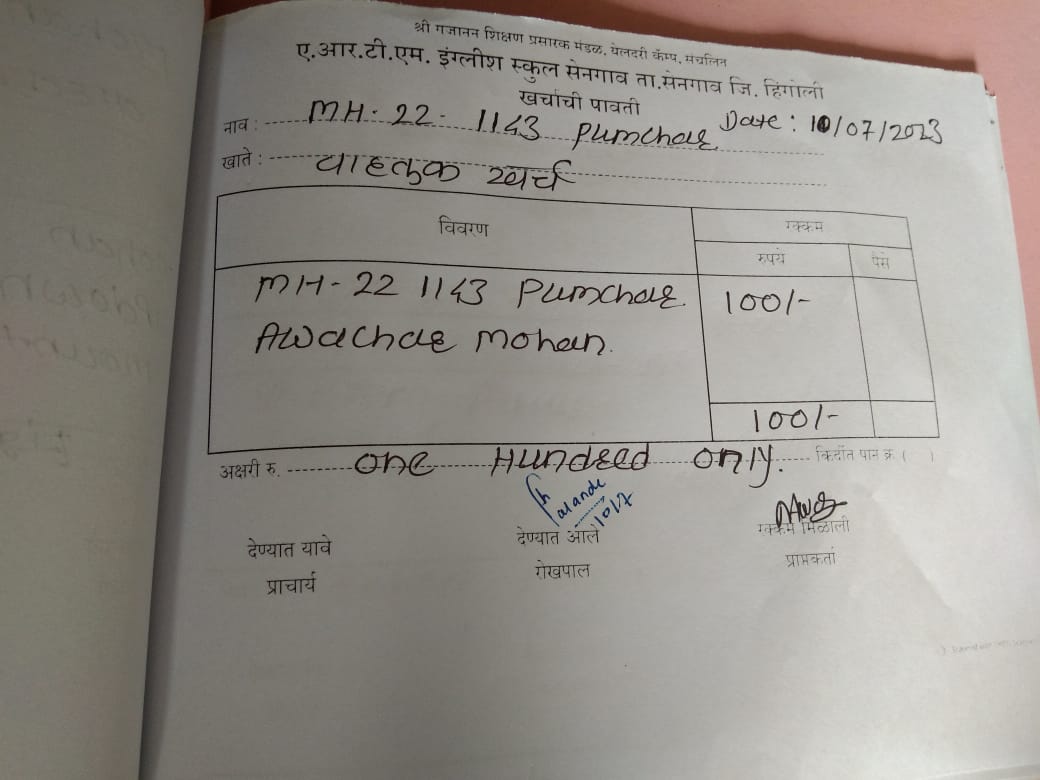 श्री गजानन शिक्षण प्रसारक मंडळ, येलदरी कॅम्प, संचलित
ए.आर.टी.एम. इंग्लीश स्कुल सेनगाव ता.सेनगाव जि. हिंगोली
खर्चाची पावती
Date: 10/07/2023
नाव : MH-22-1143 Pumchar
खाते : वाहतुक खर्च
विवरण रक्कम
रुपये पैसे
MH-22 1143 Pumchar 100/-
Awachar Mohan.
100/-
अक्षरी रु. One Hundred only. किर्दीत पान क्र ( )
10/7
देण्यात यावे देण्यात आले रक्कम मिळाली
प्राचार्य रोखपाल प्राप्तकर्ता